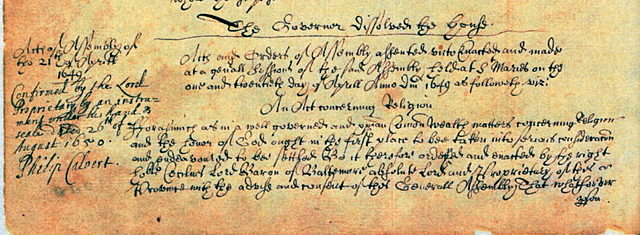 The Governor dissolved the house.
Acts of Assembly of
the 21th Aprill
1649
Confirmed by the Lord
Proprietary by an instru-
ment under his hand &
seale 26th of
August 1650.
Philip Calvert.
Acts and Orders of Assembly assented vnto Enacted and made
at a genall Sessions of the said Assembly held at St Maries on the
one and twentieth day of Aprill Anno Dm 1649 as followeth viz:
An Act concerning Religion
fforasmuch as in a well governed and xpian Comon Wealth matters concerning Religion
and the honor of God ought in the first place to bee taken into serious consideracon
and endeavoured to bee settled Bee it therefore ordered and enacted by the right
hoble Cecilius Lord Baron of Baltemore absolute Lord and Proprietary of this
Province with the advise and consent of this Generall Assembly That whatsoever
pson